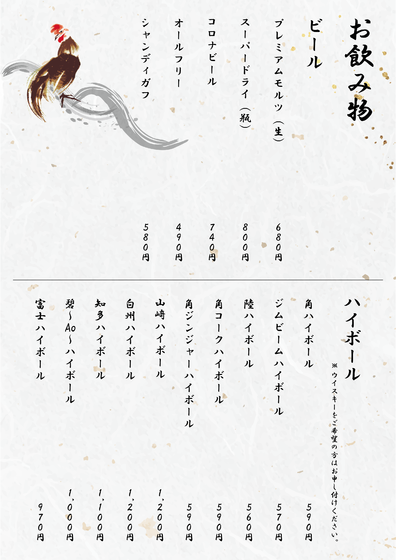 お飲み物
ビール
プレミアムモルツ（生） 680円
スーパードライ（瓶） 800円
コロナビール 740円
オールフリー 490円
シャンディガフ 580円
ハイボール
※ウイスキーをご希望の方はお申し付けください。
角ハイボール 590円
ジムビームハイボール 570円
陸ハイボール 560円
角コークハイボール 590円
角ジンジャーハイボール 590円
山崎ハイボール 1,200円
白州ハイボール 1,200円
知多ハイボール 1,100円
碧〜Ao〜ハイボール 1,000円
富士ハイボール 970円